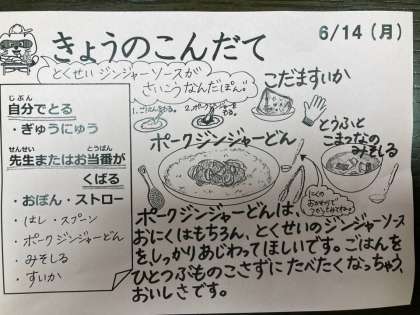 きょうのこんだて
6/14（月）
とくせいジンジャーソースが
さいこうなんだぽん。
こだますいか
じぶん
自分でとる
・ぎゅうにゅう
せんせい とうばん
先生またはお当番が
くばる
・おぼん・ストロー
・はし・スプーン
・ポークジンジャーどん
・みそしる
・すいか
1.ごはんをもる。
2.ポークジンジャーを
ポークジンジャーどん
とうふと
こまつなの
みそしる
ポークジンジャーどんは、
おにくはもちろん、とくせいのジンジャーソース
を、しっかりあじわってほしいです。ごはんを
ひとつぶものこさずにたべたくなっちゃう、
おいしさです。